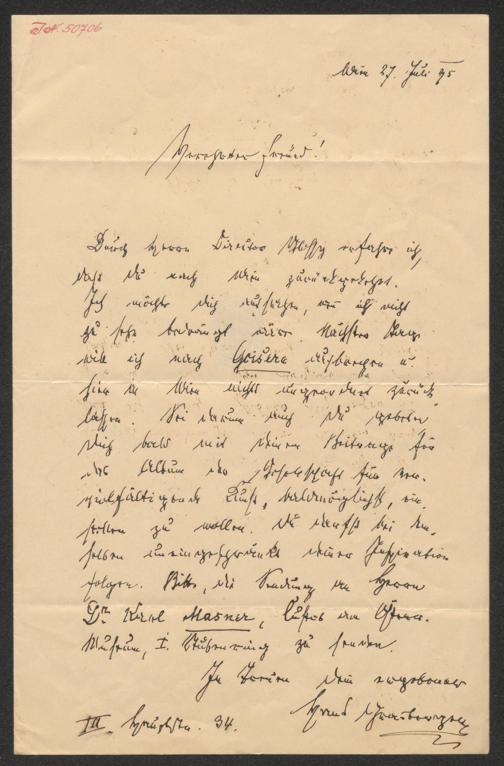 J.N. 50706
Wien 27. Juli 95
Verehrter Freund!
Durch Herrn Director erfahre ich,
daß du nach Wien zurückgekehrt.
Ich möchte dich aufsuchen, wenn ich nicht
zu sehr bedrängt wäre. Nächster Tage
will ich nach Goisern aufbrechen u.
hier in Wien nichts ungeordnet zurück
lassen. Sei darum auch du gebeten
dich bald mit deinem Beitrage für
das Album der Gesellschaft für ver-
vielfältigende Kunst, baldmöglichst, ein-
stellen zu wollen. Du darfst bei dem-
selben uneingeschränkt deiner Inspiration
folgen. Bitte, die Sendung an Herrn
Dr. Karl Masner, Custos am Österr.
Museum, I. Stubenring zu senden.
In Treuen dein ergebener
III. Hauptstr. 34.